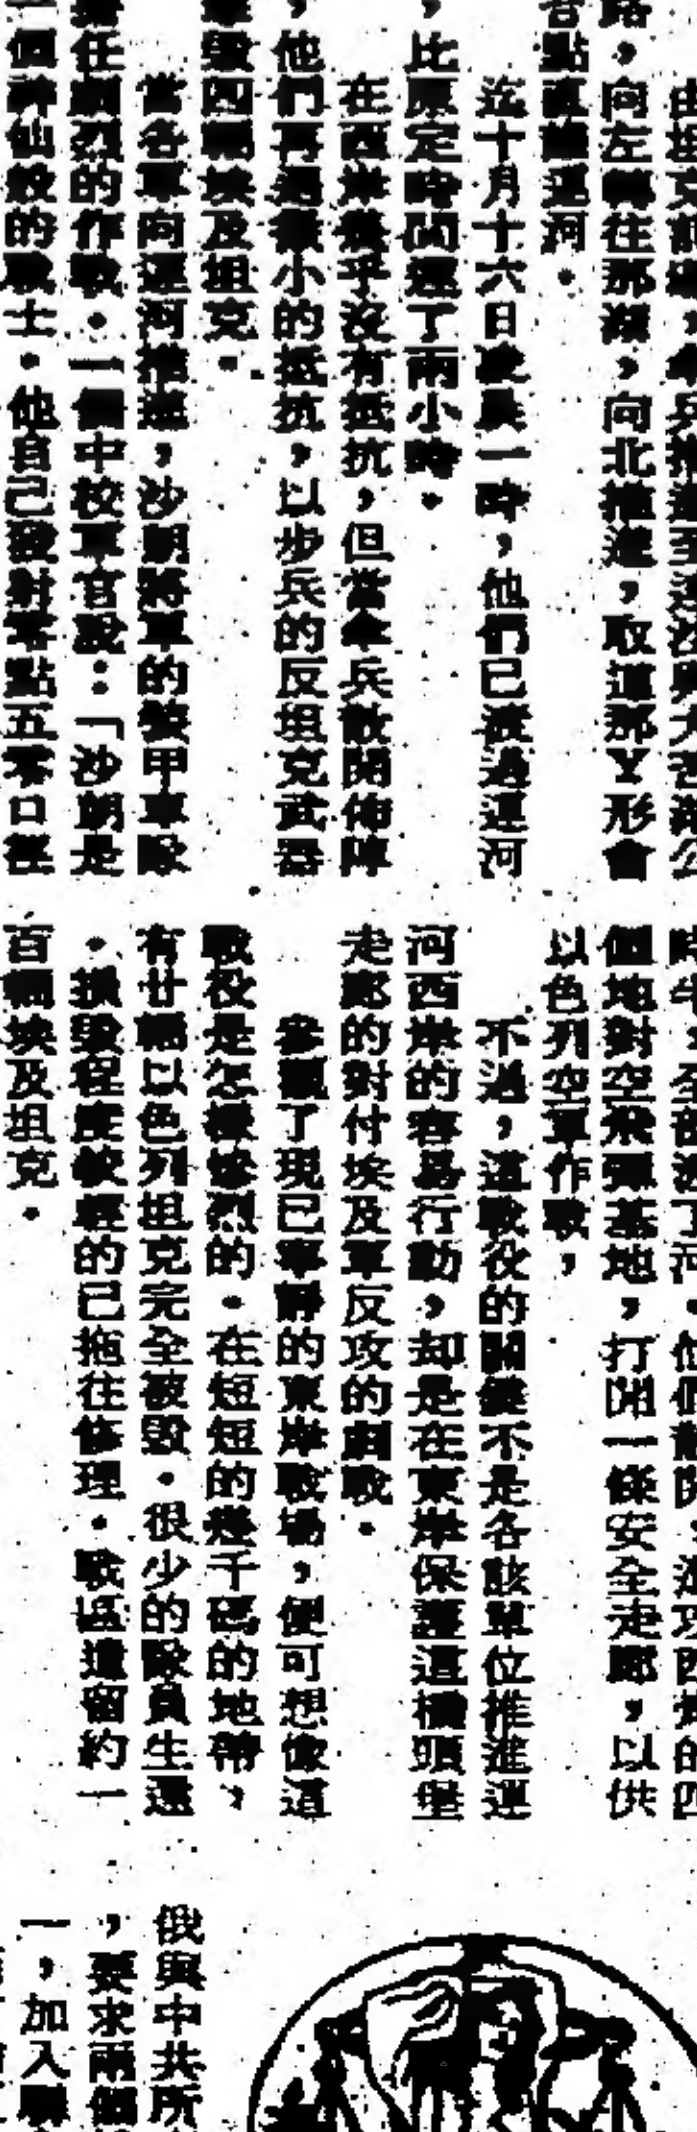 路，向左轉往那湖，向北推進，取道那Y形會
合點直趨運河。
迄十月十六日凌晨一時，他們已渡過運河
，比原定時間遲了兩小時。
在西岸幾乎沒有抵抗，但當傘兵散開佈陣
，他們再遇微小的抵抗，以步兵的反坦克武器
擊毀四輛埃及坦克。
當各軍向運河推進，沙朗將軍的裝甲車隊
擔任劇烈的作戰。一個中校軍官說：「沙朗是
一個神仙般的戰士。他自己發射零點五零口徑
個地對空飛彈基地，打開一條安全走廊，以供
以色列空軍作戰，
不過，這戰役的關鍵不是各該單位推進運
河西岸的容易行動，却是在東岸保護這橋頭堡
走廊的對付埃及軍反攻的劇戰。
參觀了現已寧靜的東岸戰場，便可想像這
戰役是怎樣慘烈的。在短短的幾千碼的地帶，
有廿輛以色列坦克完全被毀。很少的隊員生還
。損毀程度較輕的已拖往修理。戰區遺留約一
百輛埃及坦克。
俄與中共所
，要求兩個
一，加入聯